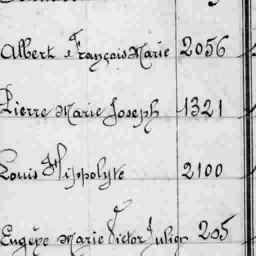 Albert François Marie 2056
Pierre Marie Joseph 1321
Louis Hippolyte 2100
Eugène Marie Victor Julien 205